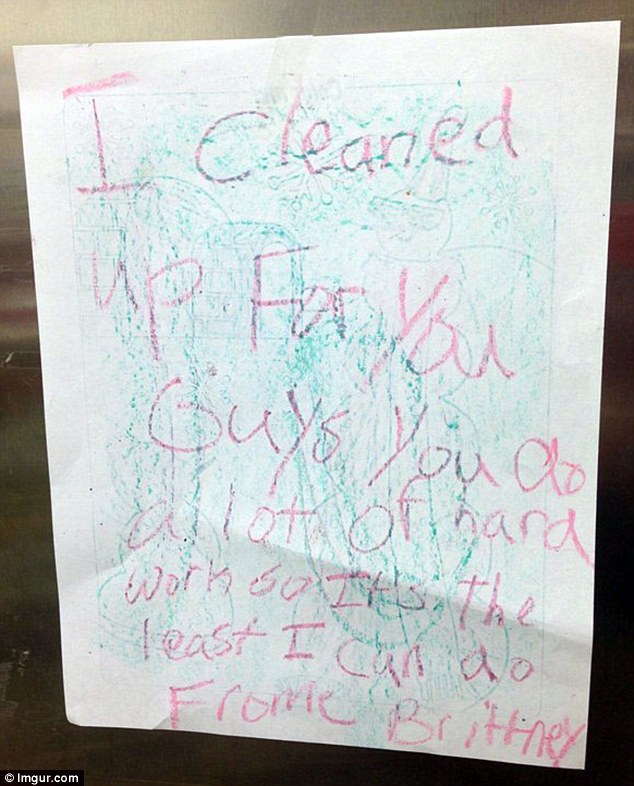 I cleaned
up For You
Guys You do
a lot of hard
work so It's the
least I can do
Frome Brittney
© Imgur.com